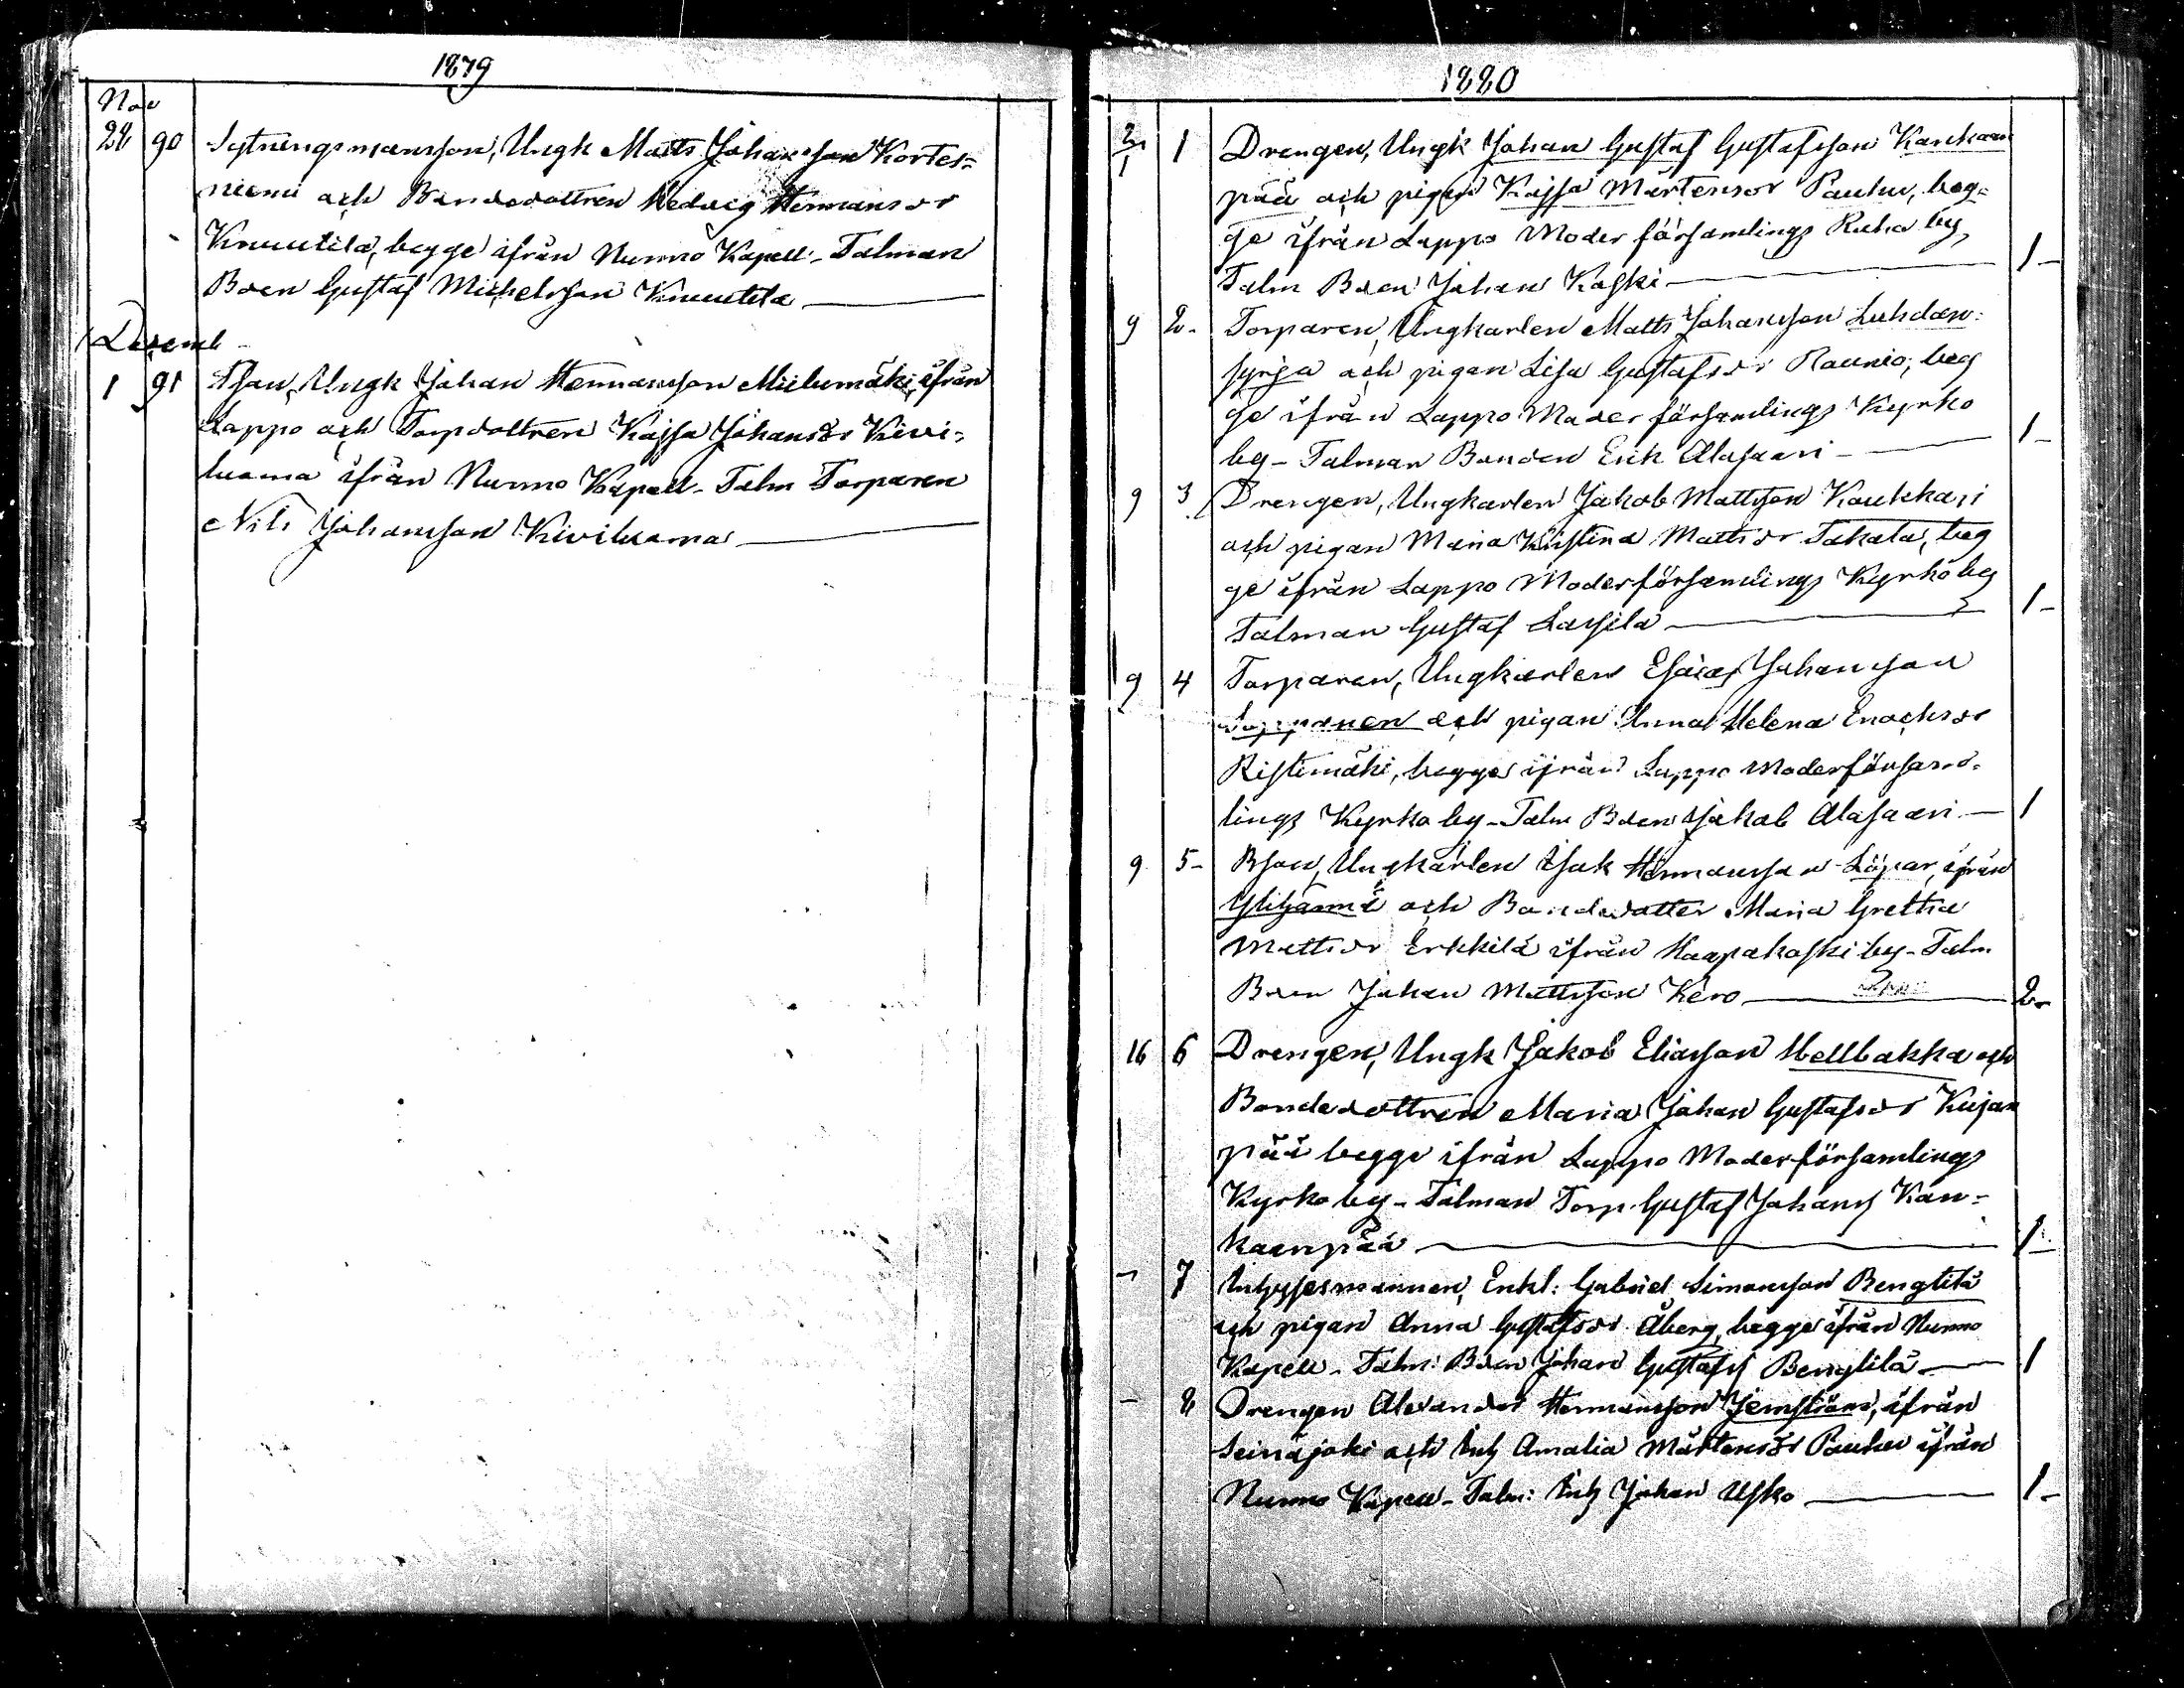 1879
Nov
28 90 Sytningsmansson, Ungk Matts Johansson Kortes=
niemi och Bondedottren Hedvig Hermansdr
Knuutila, begge ifrån Nurmo Kapell - Talman
Bden Gustaf Michelsson Knuutila
Decemb
1 91 Bson, Ungk Johan Hermansson Miilumäki, ifrån
Lappo och Torpdottren Kajsa Johansdr Kivi=
luoma ifrån Nurmo Kapell - Talm Torparen
Nils Johansson Kiviluoma
1880
2/1 1 Drengen, Ungk Johan Gustaf Gustafsson Kankaan
pää och pigan Kajsa Mårtensdr Pauhu, beg=
ge ifrån Lappo Moder församlings Ruha by,
Talm Bden Johan Koski 1-
9 2- Torparen, Ungkarlen Matts Johansson Luhdan=
syrja och pigan Lisa Gustafsdr Raunio, beg
ge ifrån Lappo Moder församlings Kyrko
by - Talman Bonden Erik Alasaari 1-
9 3 Drengen, Ungkarlen Jakob Mattsson Kaukkari
och pigan Maria Kristina Mattsdr Takala, beg
ge ifrån Lappo Moderförsamlings Kyrko by
Talman Gustaf Lassila 1-
9 4 Torparen, Ungkarlen Esaias Johansson
och pigan Anna Helena Enochsdr
Ristimäki, begge ifrån Lappo Moderförsam=
lings Kyrko by - Talm Bden Jakob Alasaari 1
9 5- Bson, Ungkarlen Isak Hermansson Löpar, ifrån
Ylihärmä och Bondedotter Maria Gretha
Mattsdr Erkkilä ifrån Haapakoski by - Talm
Bden Johan Mattsson Kero 2-
16 6 Drengen, Ungk Jakob Eliasson Hellbakka och
Bondedottren Maria Johan Gustafsdr Kujan
pää begge ifrån Lappo Moderförsamlings
Kyrko by - Talman Torp. Gustaf Johans Kan=
kaanpää 1-
- 7 Inhysesmannen, Enkl: Gabriel Simonsson Bengtilä
och pigan Anna Gustafsdr Åberg, begge ifrån Nurmo
Kapell - Talm: Bden Johan Gustafs Bengtilä 1
- 8 Drengen Alexander Hermansson Jernström, ifrån
Seinäjoki och Inh Amalia Mårtensdr Pauhu ifrån
Nurmo Kapell - Talm: Inh Johan Usko 1-